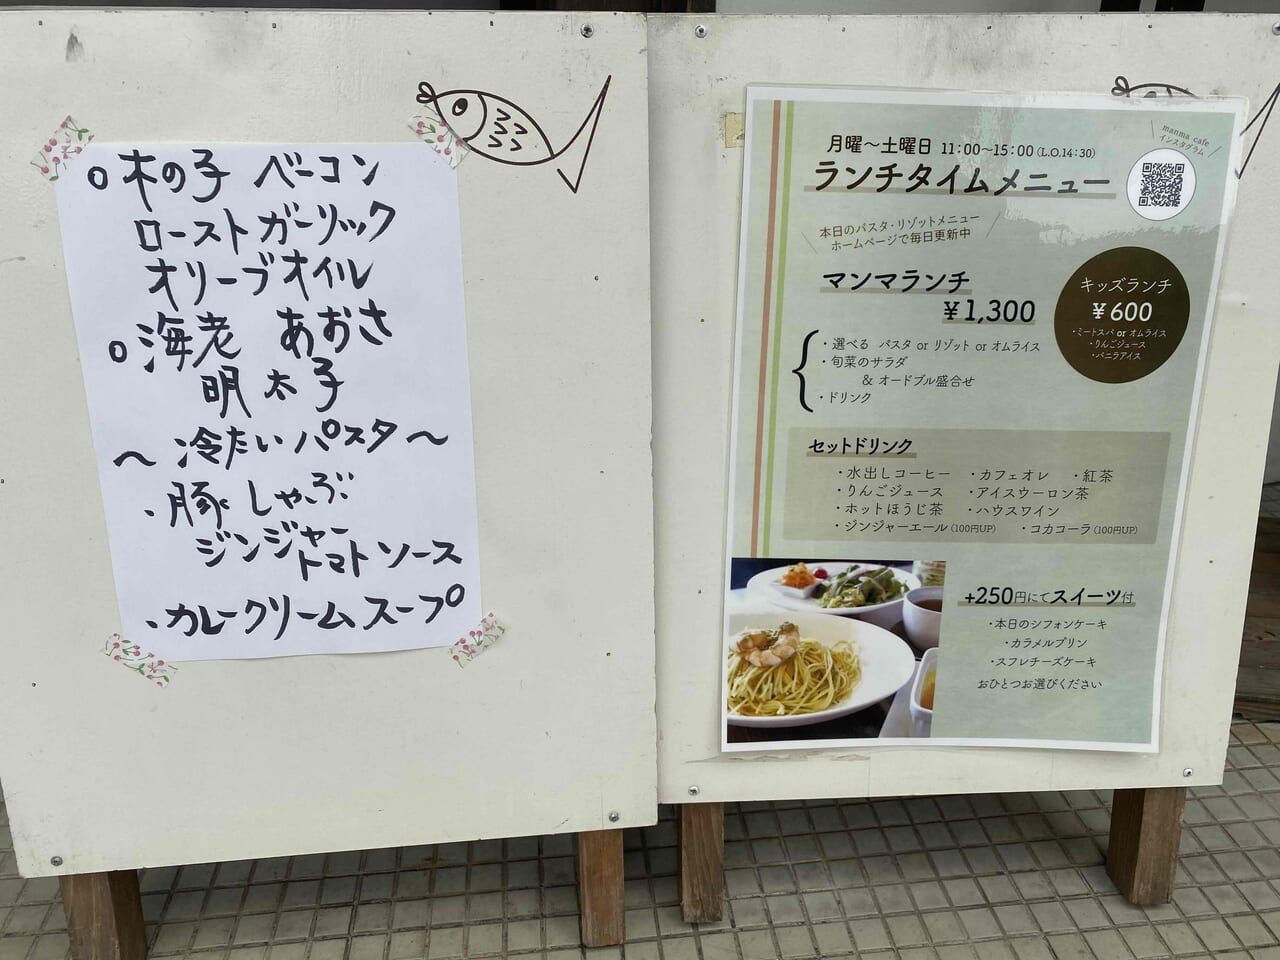 ○木の子 ベーコン
ローストガーリック
オリーブオイル
○海老 あおさ
明太子
～冷たいパスタ～
・豚しゃぶ
ジンジャー
トマトソース
・カレークリームスープ
manma cafe
インスタグラム
月曜～土曜日 11:00～15:00(L.O.14:30)
ランチタイムメニュー
本日のパスタ・リゾットメニュー
ホームページで毎日更新中
マンマランチ
￥1,300
・選べる パスタ or リゾット or オムライス
・旬菜のサラダ
& オードブル盛合せ
・ドリンク
キッズランチ
￥600
・ミートスパ or オムライス
・りんごジュース
・バニラアイス
セットドリンク
・水出しコーヒー ・カフェオレ ・紅茶
・りんごジュース ・アイスウーロン茶
・ホットほうじ茶 ・ハウスワイン
・ジンジャーエール(100円UP) ・コカコーラ(100円UP)
+250円にてスイーツ付
・本日のシフォンケーキ
・カラメルプリン
・スフレチーズケーキ
おひとつお選びください